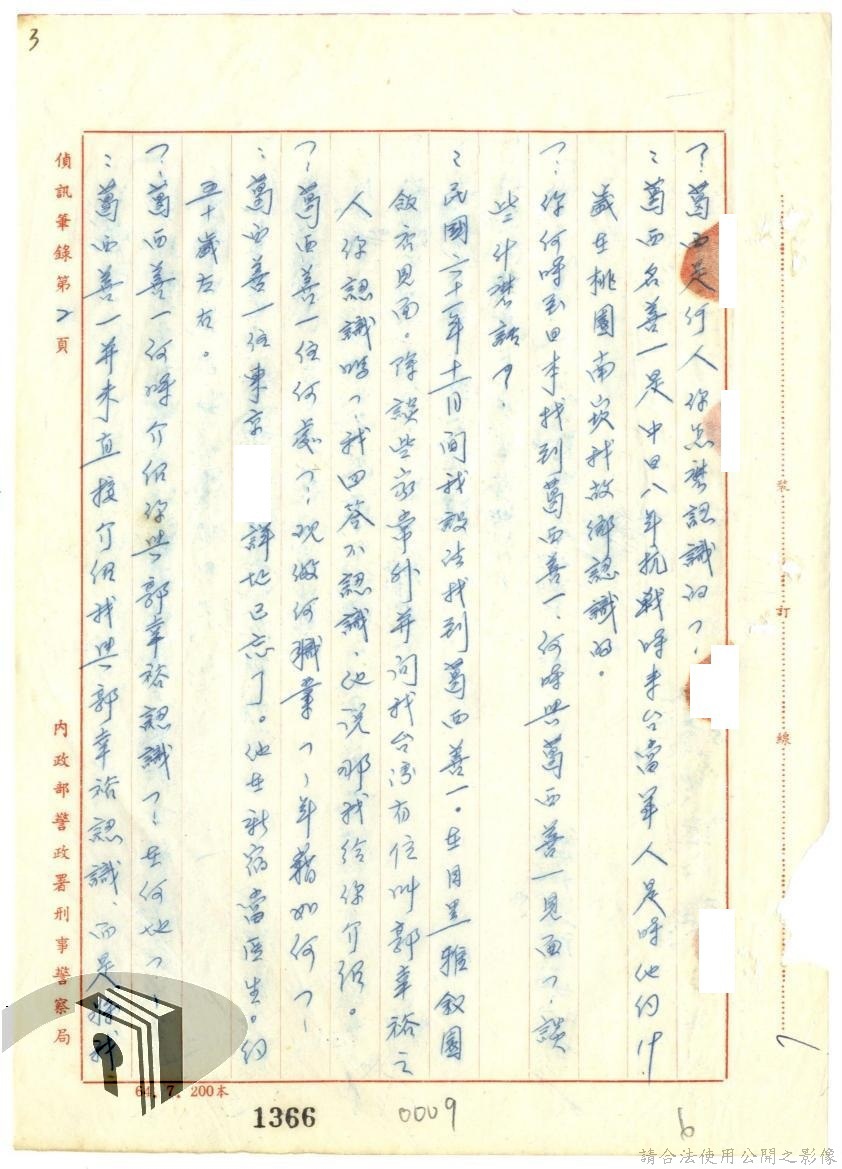 3
？：葛西是何人你怎麼認識的？
：葛西名善一是中日八年抗戰時來台當軍人是時他約廿
歲在桃園南崁我故鄉認識的。
？：你何時至日本找到葛西善一、何時與葛西善一見面？談
些什麼話？
：民國六十一年十一月間我設法找到葛西善一。在目黑雅叙園
飯店見面。除談些家常外并问我台湾有位叫郭幸裕之
人你認識嗎？我回答不認識，他说那我给你介紹。
？：葛西善一住何處？現做何職業？年籍如何？
：葛西善一住東京 詳址已忘了。他在新宿當医生。約
五十歲左右。
？：葛西善一何時介绍你與郭幸裕認識？在何地？
：葛西善一并未直接介绍我與郭幸裕認識、而是 我
偵訊筆錄第2頁
內政部警政署刑事警察局
裝訂線
64. 7. 200本
1366
0009
6
請合法使用公開之影像